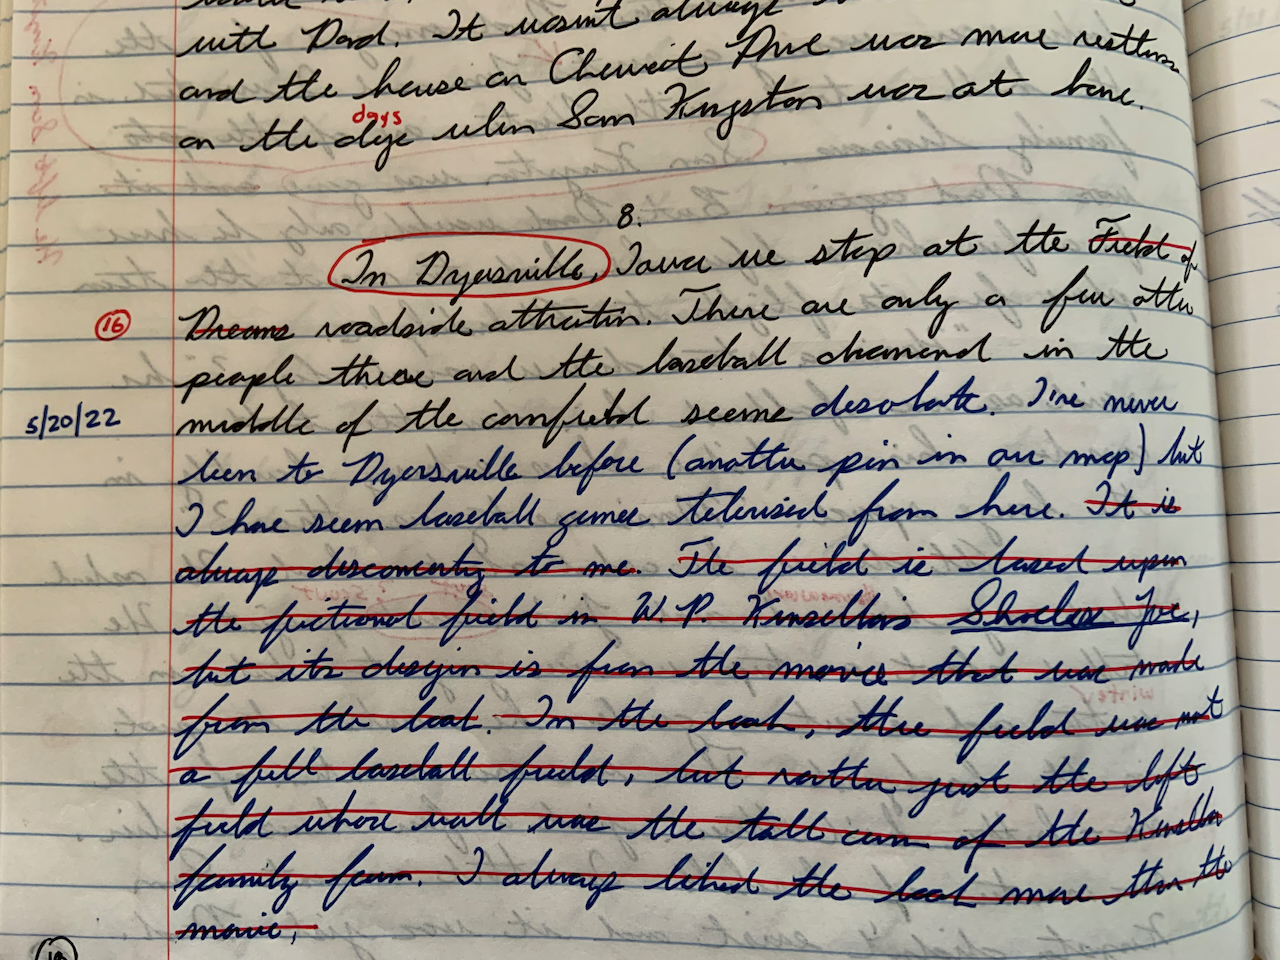 with Dad. It wasn't always
and the house on Cheviot Drive was more restless
days
on the days when Sam Kingston was at home.
8.
In Dyersville, Iowa we stop at the Field of
16
Dreams roadside attraction. There are only a few other
people there and the baseball diamond in the
5/20/22
middle of the cornfield seems desolate. I've never
been to Dyersville before (another pin in our map) but
I have seen baseball games televised from here. It is
always disconcerting to me. The field is based upon
the fictional field in W. P. Kinsella's Shoeless Joe,
but its design is from the movie that was made
from the book. In the book, the field was not
a full baseball field, but rather just the left
field whose wall was the tall corn of the Kinsella
family farm. I always liked the book more than the
movie,